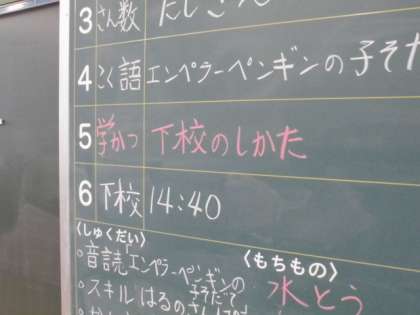 3 さん数 たしざん
4 こく語 エンペラーペンギンの子そだ
5 学かつ 下校のしかた
6 下校 14:40
〈しゅくだい〉
○音読「エンペラーペンギンの
子そだて
○スキル はるの
〈もちもの〉
水とう